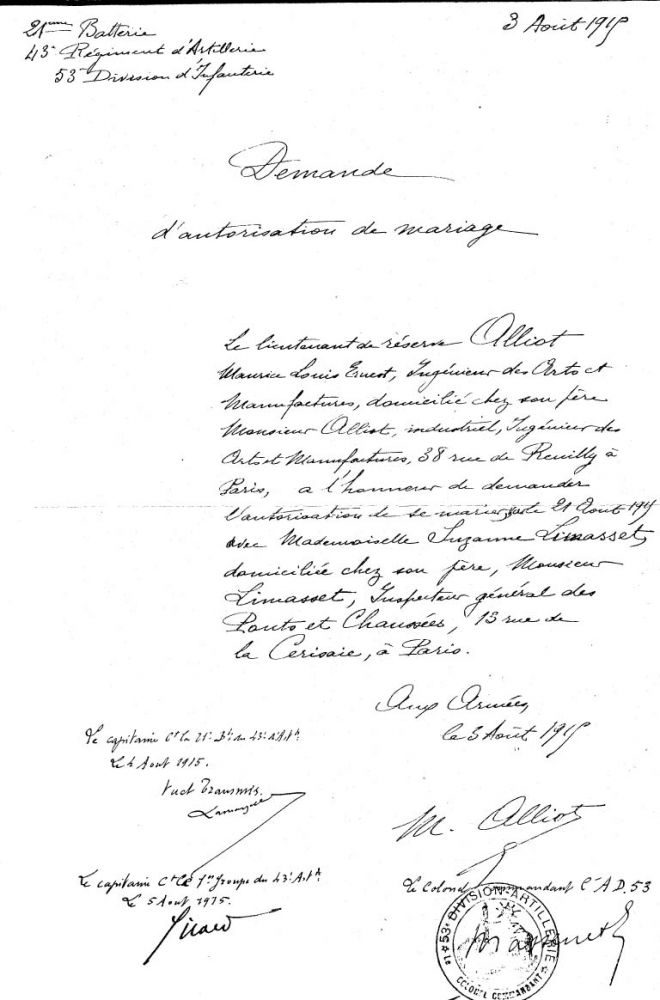 21ème Batterie
43e Régiment d'Artillerie
53e Division d'Infanterie
3 Août 1915
Demande
d'autorisation de mariage
Le lieutenant de réserve Alliot
Maurice Louis Ernest, Ingénieur des Arts et
Manufactures, domicilié chez son père
Monsieur Alliot, industriel, Ingénieur des
Arts et Manufactures, 38 rue de Reuilly à
Paris, a l'honneur de demander
l'autorisation de se marier le 21 Août 1915
avec Mademoiselle Suzanne Limasset,
domiciliée chez son père, Monsieur
Limasset, Inspecteur général des
Ponts et Chaussées, 15 rue de
la Cerisaie, à Paris.
Aux Armées,
le 3 Août 1915
Le capitaine Ct la 21e Bie du 43e d'Art.
Le 4 Aout 1915.
Vu et Transmis.
M. Alliot
Le capitaine Ct le 1er groupe du 43e Art.
Le 5 Aout 1915.
Le Colonel Commandant l'A D. 53
53e DIVISION ARTILLERIE
COLONEL COMMANDANT